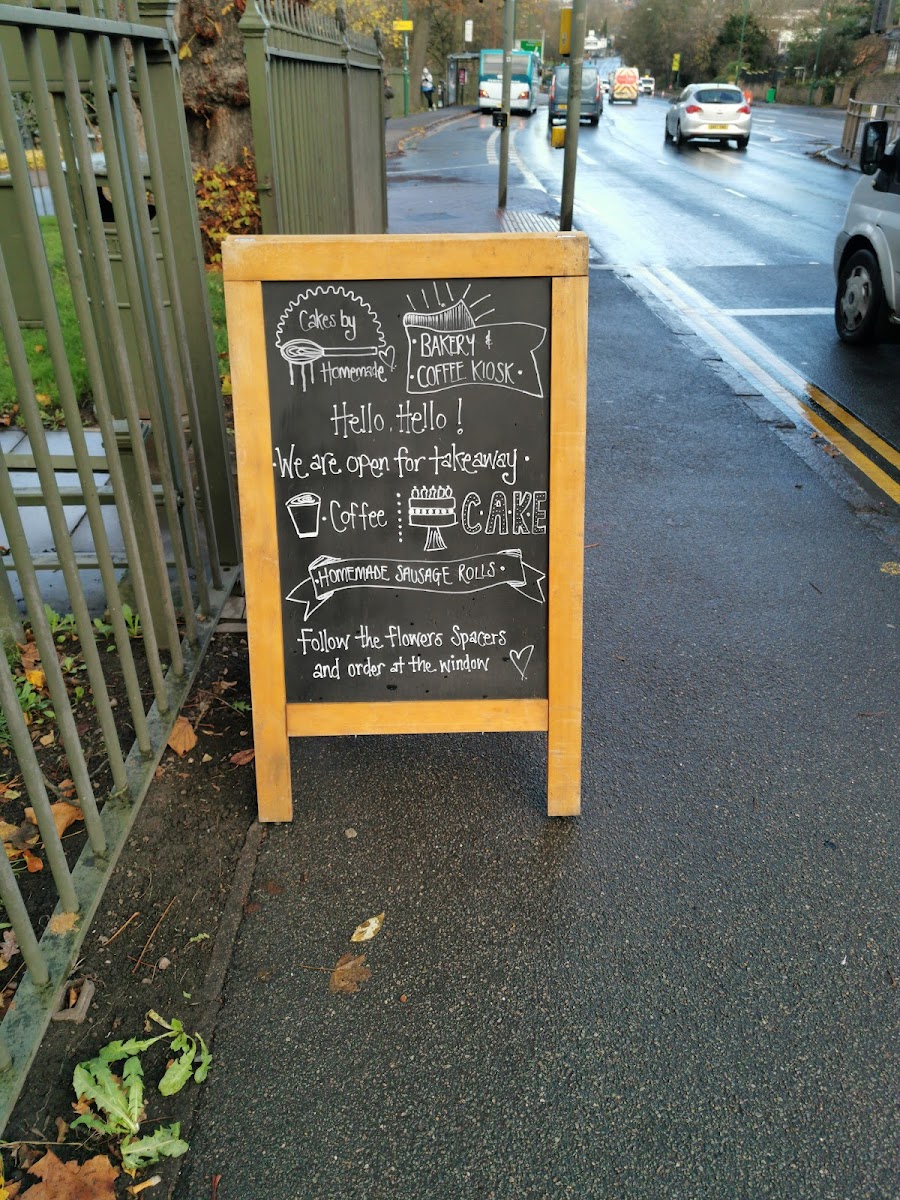 Cakes by
Homemade
BAKERY &
COFFEE KIOSK
Hello, Hello!
We are open for takeaway
Coffee
CAKE
HOMEMADE SAUSAGE ROLLS
Follow the flowers Spacers
and order at the window